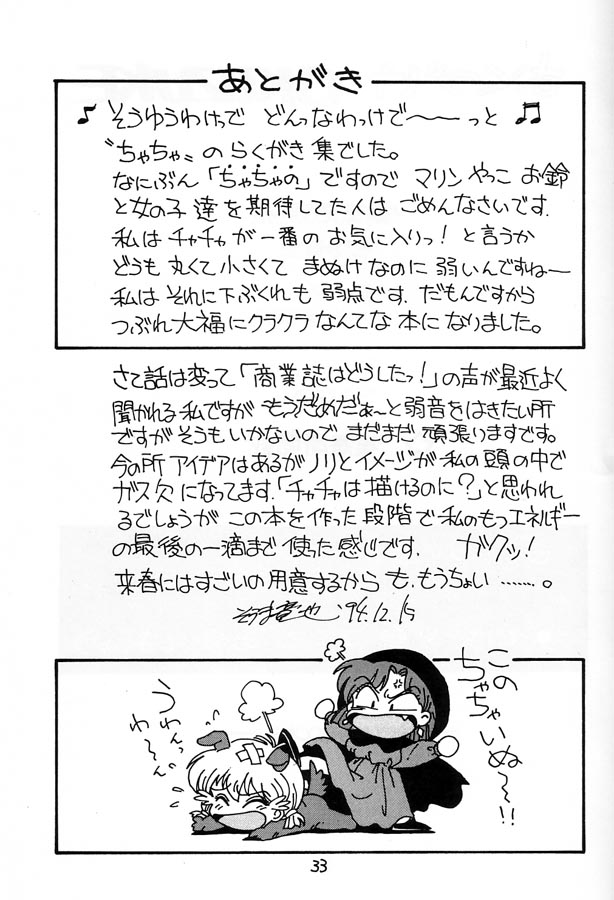 あとがき
♪ そうゆうわけっで どんっなわっけで〜〜っと ♫
"ちゃちゃ"のらくがき集でした。
なにぶん「ちゃちゃの」ですので マリン やっこ お鈴
と女の子達を期待してた人は ごめんなさいです.
私はチャチャが一番のお気に入りっ！と言うか
どうも丸くて小さくて まぬけなのに弱いんですねー
私はそれに下ぶくれも弱点です.だもんですから
つぶれ大福にクラクラなんてな本になりました。
さて話は変って「商業誌はどうしたっ！」の声が最近よく
聞かれる私ですが もうだめだぁ〜と弱音をはきたい所
ですがそうもいかないので まだまだ 頑張りますです。
今の所アイデアはあるがノリとイメージが私の頭の中で
ガス欠になってます.「チャチャは描けるのに？」と思われ
るでしょうが この本を作った段階で私のもつエネルギー
の最後の一滴まで使った感じです. ガクッ！
来春にはすごいの用意するから も、もうちょい……。
'94.12.15
この
ちゃちゃいぬ〜〜!!
うわんっ
わ〜〜ん
33